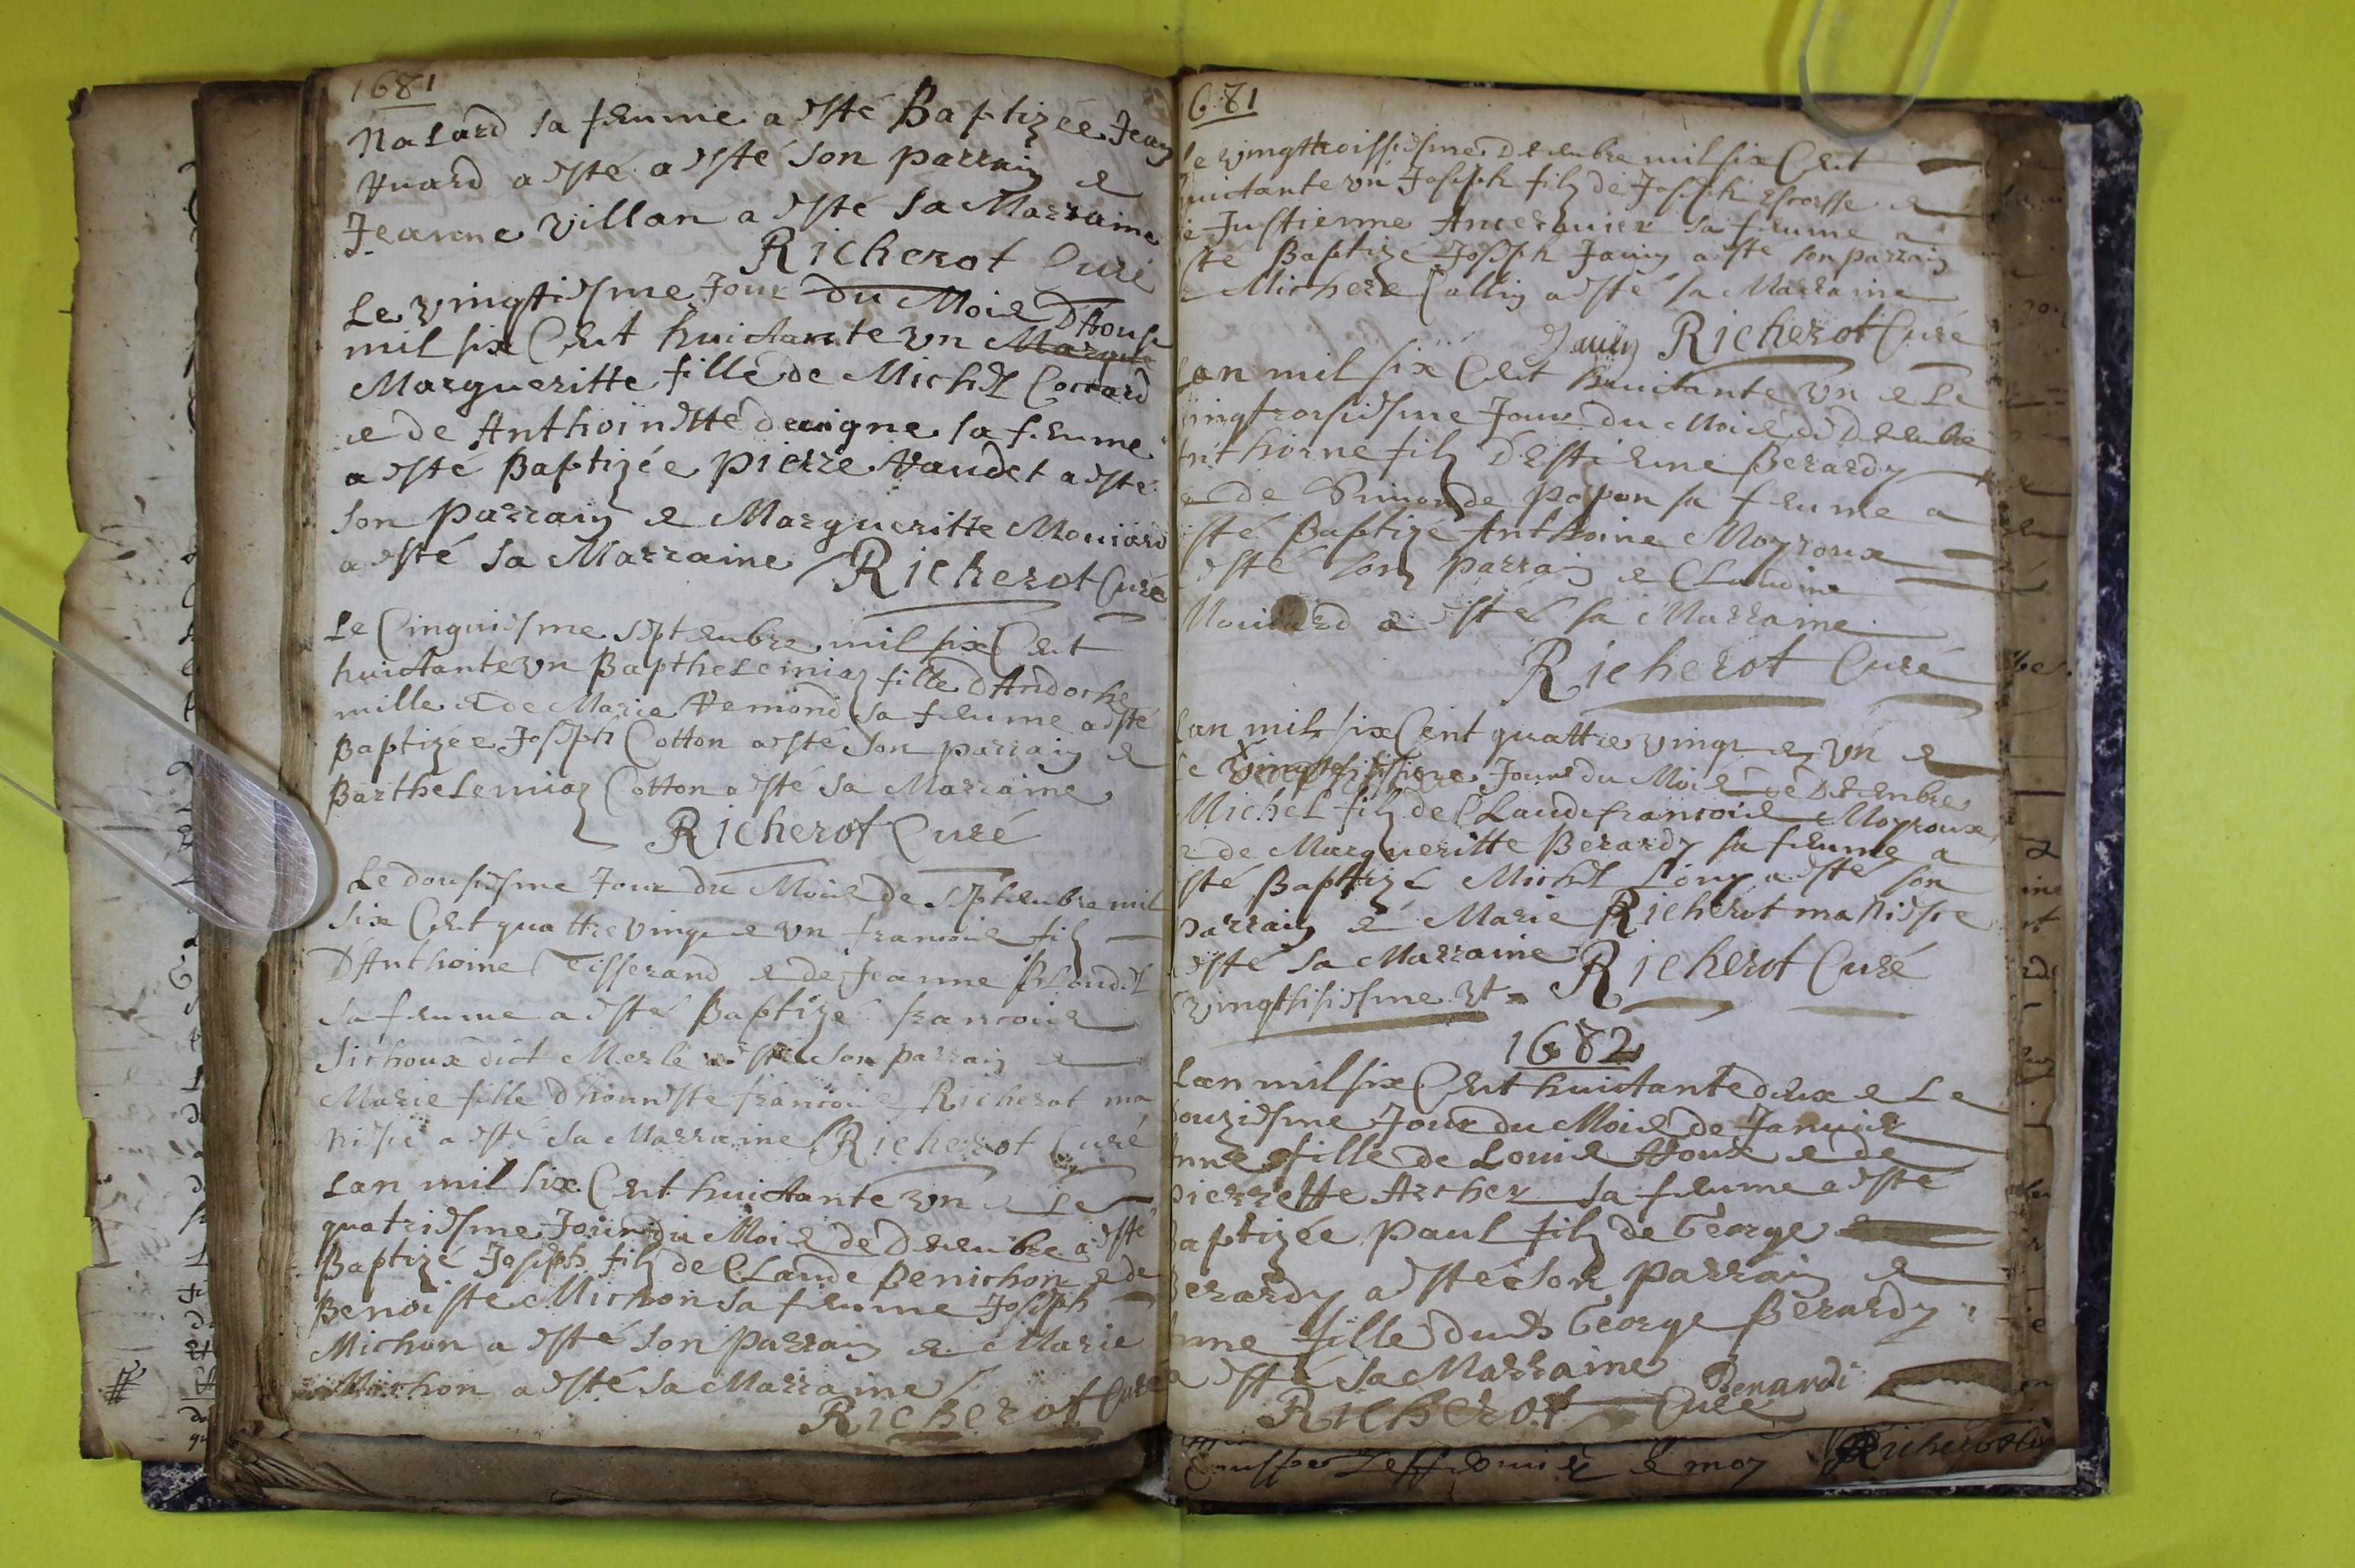 1681
Nalard sa femme a esté Baptizée Jean
Huard a esté a esté son parrain e
Jeanne Villan a esté sa Marraine
Richerot Curé
Le vingtiesme Jour du Moie D'Aoust
mil six Cent huictante un Margue
Margueritte fille de Michel Cottard
e de Anthoinette devigne sa femme
a esté Baptizée pierre Vaudet a esté
son parrain e Margueritte Mouiard
a esté sa Marraine Richerot Curé
Le Cinquiesme septembre mil six Cent
huictante un Bapthelemiaz fille d'Andoche
mille e de Marie Hemond sa femme a esté
Baptizée Joseph Cotton a esté son parrain e
Barthelemiaz Cotton a esté sa Marraine
Richerot Curé
Le dousiesme Jour du Moie de septembre mil
six Cent quattre vingt e un francoie filz
D'Anthoine Tisserand e de Jeanne Blondel
sa femme a esté Baptizé francoie
Sichoux dict Merle a esté son parrain e
Marie fille d'honneste francoie Richerot ma
niepce a esté sa Marraine Richerot Curé
Lan mil six Cent huictante un e Le
quatriesme Jour du Moie de Decembre a esté
Baptizé Joseph filz de Claude Benichon e de
Benoiste Michon sa femme Joseph
Michon a esté son parrain e Marie
Michon a esté sa Marraine
Richerot Curé
681
Le vingttroissiesme Decembre mil six Cent
huictante un Joseph filz de Joseph Escoesse e
e Justienne sa femme a
sté Baptizé Joseph Jauin a esté son parrain
e Michere Callin a esté sa Marraine
Jauin Richerot Curé
Lan mil six Cent huictante un e Le
vingtroisiesme Jour du Moie de Decembre
Anthoine filz D'Estienne Berardy
e de Simonde Papon sa femme a
sté Baptizé Anthoine Moyroux
esté son parrain e Claudine
Mouiard a esté sa Marraine
Richerot Curé
Lan mil six Cent quattre vingt e un e
e Jour du Moie de Decembre
Michel filz de Claude francoie Moyroux
e de Margueritte Berardy sa femme a
sté Baptizé Michel Lony a esté son
parrain e Marie Richerot ma niepce
esté sa Marraine Richerot Curé
vingtsisiesme
1682
Lan mil six Cent huictante deux e Le
douziesme Jour du Moie de Januier
Anne fille de Louie Houx e de
pierrette Archer sa femme a esté
Baptizée paul filz de George
Berardy a esté son parrain e
Anne fille dudt George Berardy
a esté sa Marraine Berardi
Richerot Curé
e moy Richerot